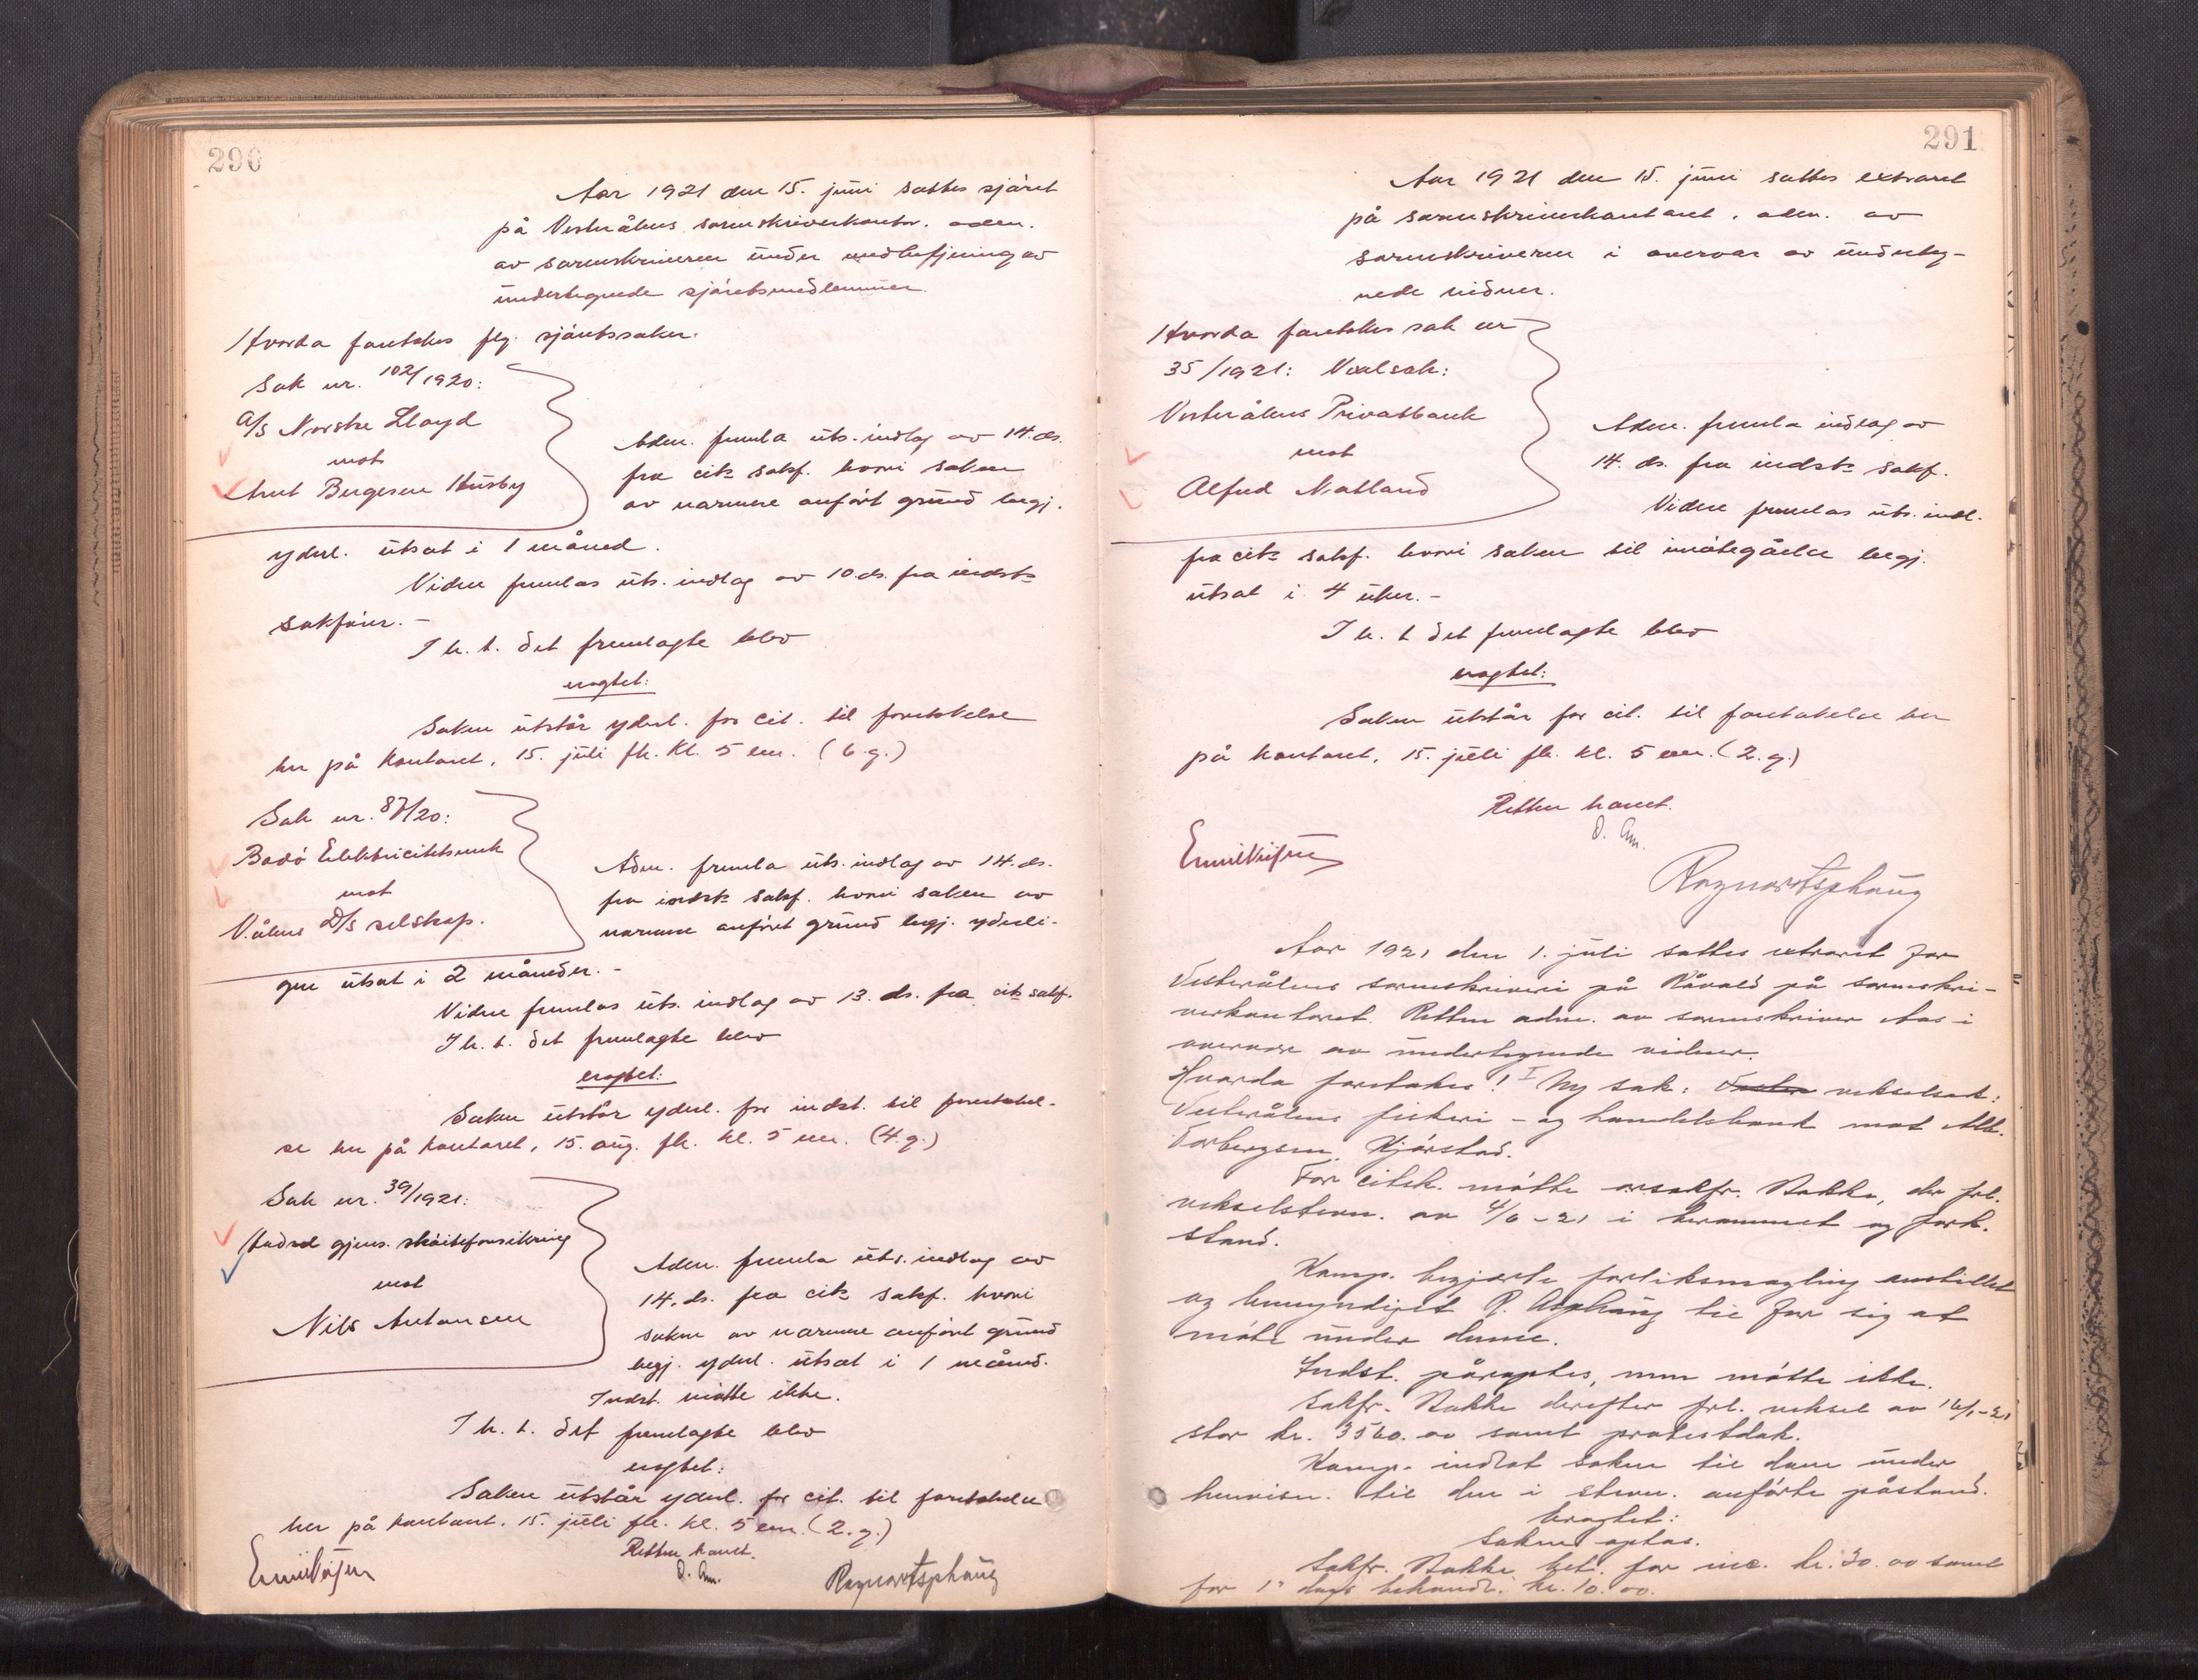 290
Aar 1921 den 15. juni sattes sjøret
på Vesterålens sorenskriverkontor. adm.
av sorenskriveren under medbetjening av
undertegnede sjøretsmedlemmer.
Hvorda foretokes flg. sjøretssaker.
Sak nr. 102/1920:
A/S Norske Lloyd
mot
Arnt Bergesen Husby
Adm. fremla uts. indlæg av 14. ds.
fra cits sakf. hvori saken
av nærmere anført grund begj.
yderl. utsat i 1 måned.
Videre fremlas uts. indlæg av 10 ds. fra indsts
sakfører. -
I h. t. det fremlagte blev
eragtet:
Saken utstår yderl. for cit. til foretakelse
her på kontoret, 15. juli fk. kl. 5 em. (6 g.)
Sak nr. 87/20:
Bodø Elektricitetsverk
mot
V.ålens D/S selskap.
Adm. fremla uts. indlæg av 14. ds.
fra indsts sakf. hvori saken av
nærmere anført grund begj. yderli-
gere utsat i 2 måneder. -
Videre fremlas uts. indlæg av 13. ds. fra cits sakf.
I h. t. det fremlagte blev
eragtet:
Saken utstår yderl. for indst. til foretakel-
se her på kontoret, 15. aug. fk. kl. 5 em. (4. g.)
Sak nr. 39/1921:
Hadsel gjens. skøiteforsikring
mot
Nils Antonsen
Adm. fremla uts. indlæg av
14. ds. fra cits sakf. hvori
saken av nærmere anført grund
begj. yderl. utsat i 1 måned.
Indst. møtte ikke.
I h. t. det fremlagte blev
eragtet:
Saken utstår yderl. for cit. til foretakelse
her på kontoret, 15. juli fk. kl. 5 em. (2. g.)
Retten hævet.
O. Aas.
Ragnar Asphaug
291
Aar 1921 den 15. juni sattes extraret
på sorenskriverkontoret. adm. av
sorenskriveren i overvær av underteg-
nede vidner.
Hvorda foretokes sak nr
35/1921: Vexelsak:
Vesterålens Privatbank
mot
Alfred Natland
Adm. fremla indlæg av
14. ds. fra indsts sakf.
Videre fremlas uts. indl.
fra cits sakf. hvori saken til imøtegåelse begj.
utsat i 4 uker. -
I h. t. det fremlagte blev
eragtet:
Saken utstår for cit. til foretakelse her
på kontoret, 15. juli fk. kl. 5 em. (2. g.)
Retten hævet.
O. Aas.
Ragnar Asphaug
Aar 1921 den 1. juli sattes extraret for
Vesterålens sorenskriveri på Råvald på sorenskri-
verkontoret. Retten adm. av sorenskriver Aas i
overvær av undertegnede vidner.
Hvorda foretokes: I Ny sak: vekselsak:
Vesterålens fiskeri- og handelsbank mot Alb.
Torbergsen, Kjørstad.
For citsk. møtte orsakfr. Stakke, der frl.
vekselstevn. av 4/6-21 i berammet og fork.
stand.
Komp. begjærte forliksmægling anstillet
og bemyndiget R. Asphaug til for sig at
møte under denne.
Indst. påroptes, men møtte ikke.
Sakfr. Stakke derefter frl. veksel av 16/1-21
stor kr. 3560.00 samt protestdok.
Komp. indlot saken til dom under
henvisn. til den i stevn. anførte påstand.
Eragtet:
Saken optas.
Sakfr. Stakke bet. for inc. kr. 30.00 samt
for 1ste dags behandl. kr. 10.00.